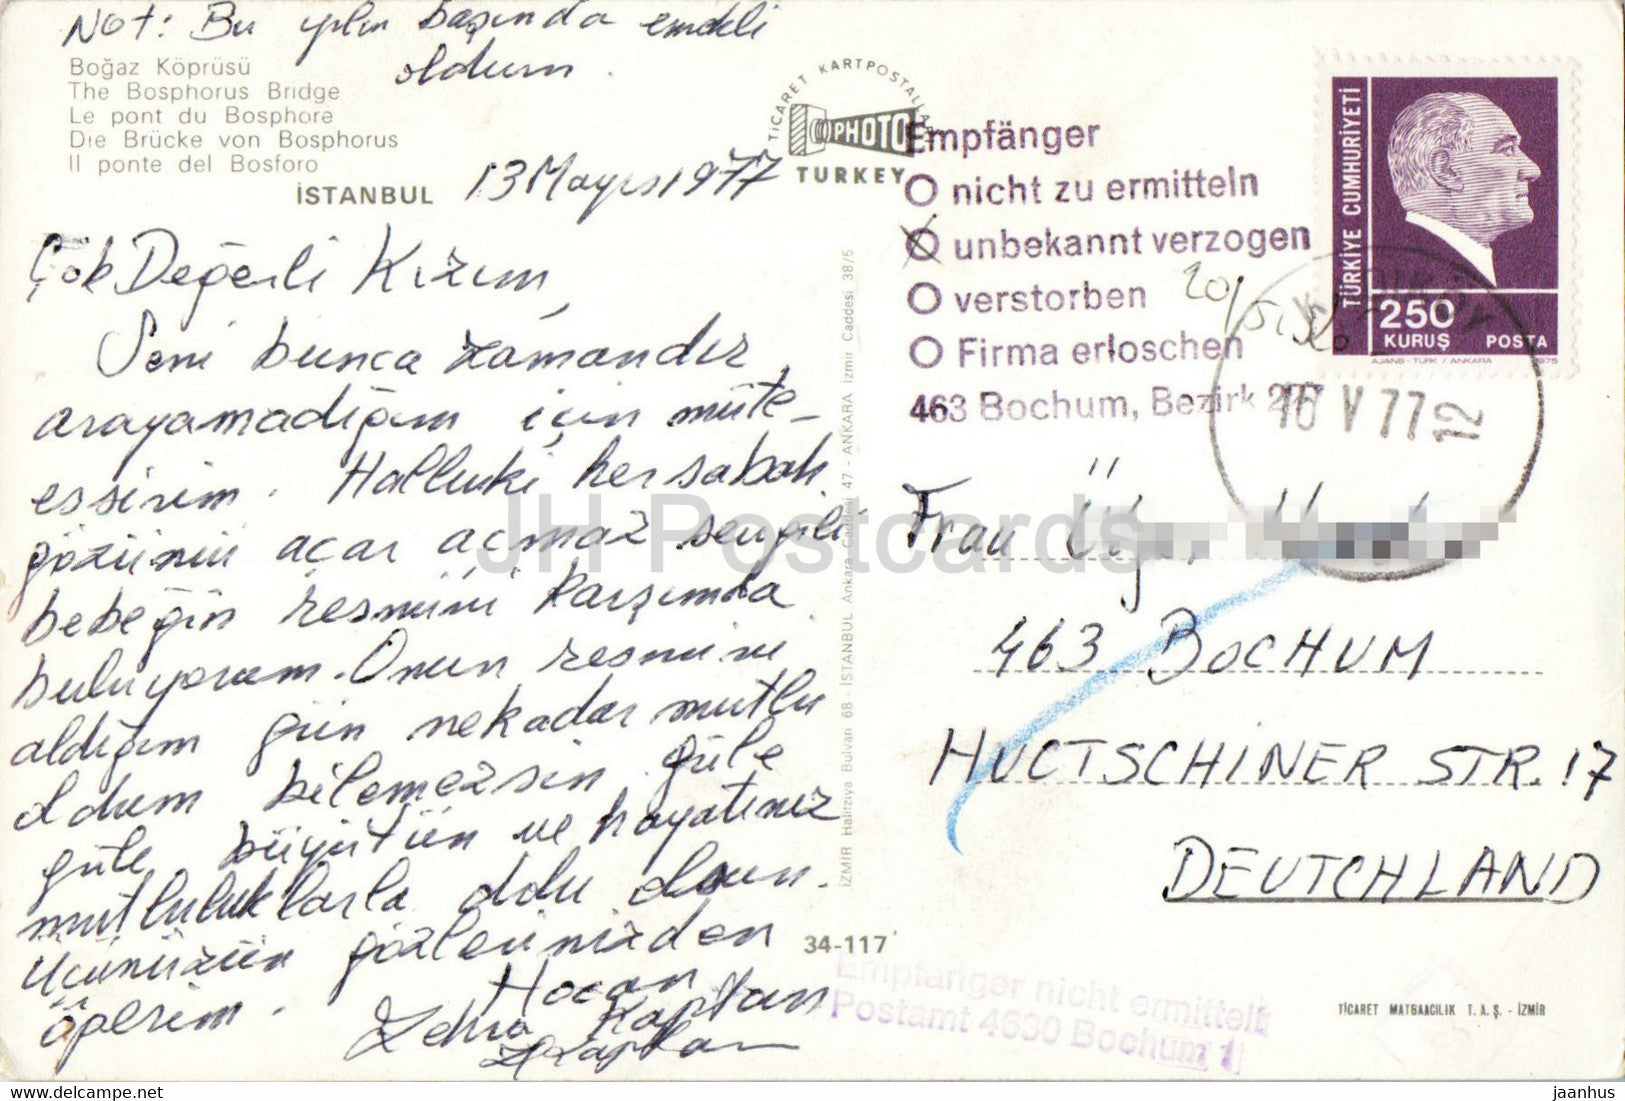 Not: Bu yılın başında emekli
oldum.
Boğaz Köprüsü
The Bosphorus Bridge
Le pont du Bosphore
Die Brücke von Bosphorus
Il ponte del Bosforo
İSTANBUL
13 Mayıs 1977
Çok Değerli Kızım,
Seni bunca zamandır
arayamadığım için müte-
essirim. Halluki her sabah
gözümü açar açmaz sevgili
bebeğin resmini karşımda
buluyorum. Onun resmini
aldığım gün nekadar mutlu
oldum bilemezsin. güle
güle büyütün ve hayatınız
mutluluklarla dolu olsun.
Üçünüzün gözlerinizden
öperim.
Hocan
Zehra Kaptan
ZKaptan
TİCARET KARTPOSTALLARI
PHOTO
TURKEY
İZMİR Halitziya Bulvarı 68 - İSTANBUL Ankara Caddesi 47 - ANKARA İzmir Caddesi 38/5
34-117
Empfänger
nicht zu ermitteln
unbekannt verzogen
verstorben
Firma erloschen
463 Bochum, Bezirk
TÜRKİYE CUMHURİYETİ
250
KURUŞ POSTA
AJANS-TÜRK / ANKARA 1975
16 V 77 12
Frau
463 BOCHUM
HUCTSCHINER STR. 17
DEUTCHLAND
Empfänger nicht ermittelt
Postamt 4630 Bochum 1
TİCARET MATBAACILIK T. A. Ş. - İZMİR
JH Postcards
delcampe.net
jaanhus